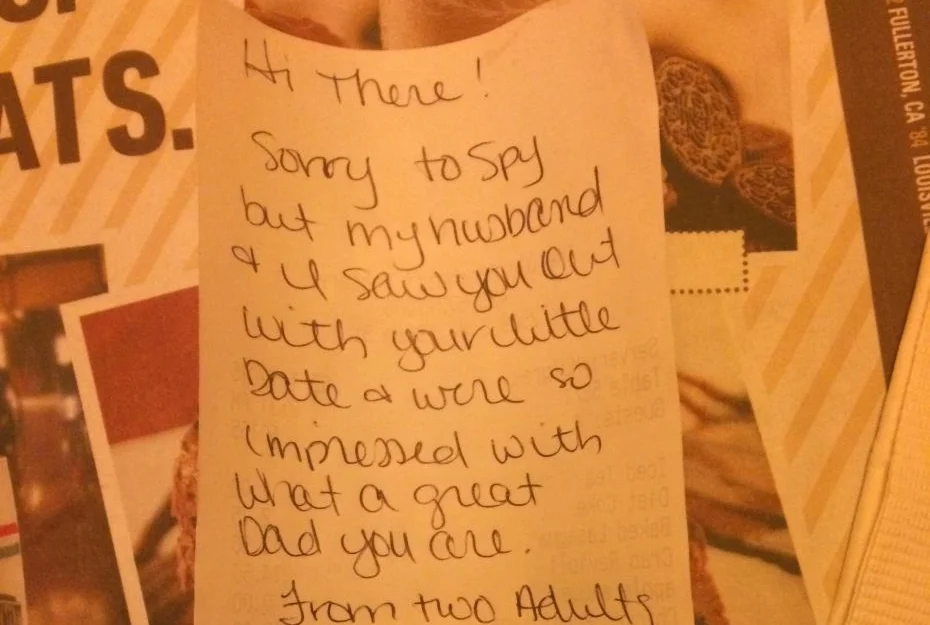 ATS.
FULLERTON, CA '84
Hi There!
Sorry to Spy
but my husband
& I saw you out
with your little
Date & were so
impressed with
what a great
Dad you are.
From two Adults
Iced Tea
Diet Coke